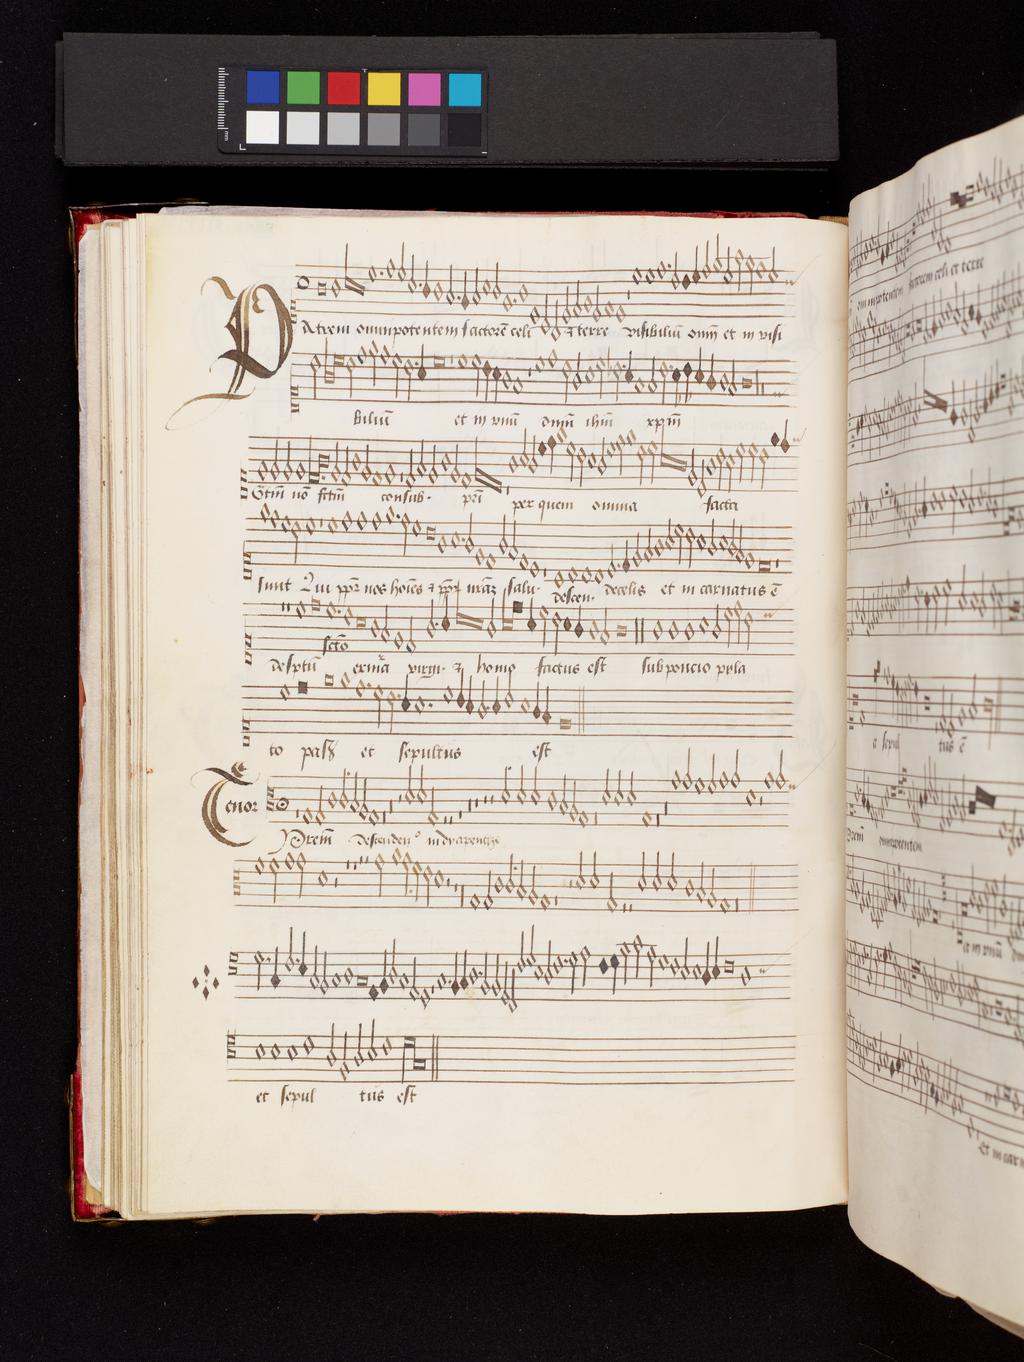 PAtrem omnipotentem factorē celi & terre visibiliū oniū et in visi
biliū et in vnū dmn̄ ihm̄ xpm̄
Gtm̄ nō fctm̄ consub. pri per quem omnia facta
sunt Qui ppr nos hoies & ppr nrāz salu. descen. decelis et in carnatus ē
despū scto exmia virgi. & homo factus est sub poncio pyla
to pass et sepultus est
Tenor
Prem̄ Descendendo in dyapenthe
et sepul tus est
omnipotentem factorem celi et terre
e sepul tus ē
Prem̄ omnipotentem
et in vnū
Et in carn